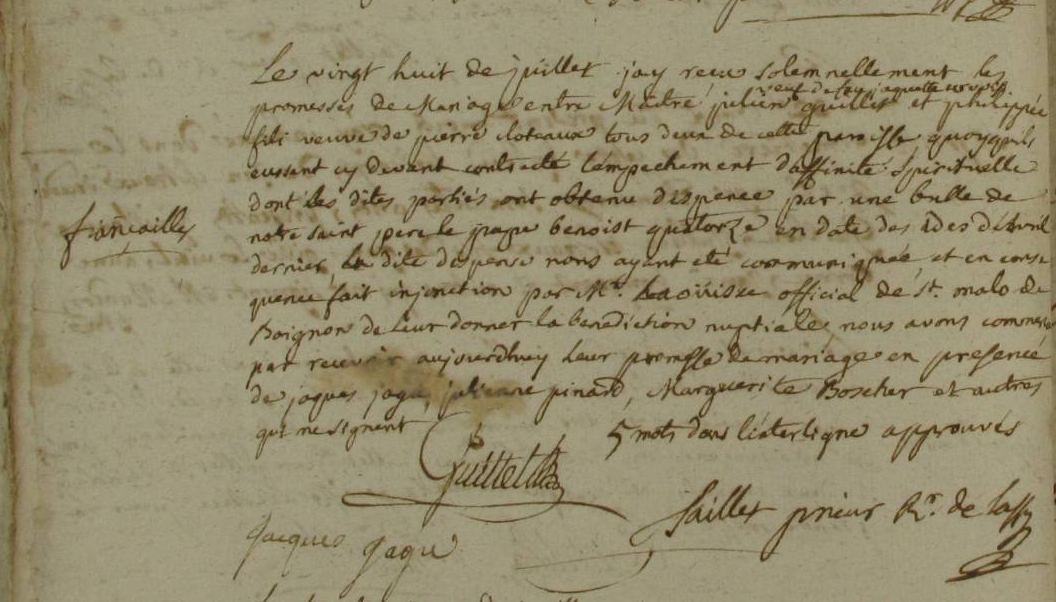 fiançailles
Le vingt huit de juillet jay receu solemnellement les
veuf de feu jaquette
promesses de Mariage entre Maitre julien guillet et philippée
fili veuve de pierre cloteaux tous deux de cette paroisse, quoy quils
eussent cy devant contracté lempechement daffinité spirituelle
dont les dites parties ont obtenu dispence par une bulle de
notre saint pere le pape benoist quatorze en date des ides davril
dernier, la dite dispense nous ayant eté communiquée et en conse
quence fait injonction par Mr. official de St. malo de
Baignon de leur donner la benediction nuptiale, nous avons commencé
par recevoir aujourdhuy leur promesse de mariage en presence
de jaques jagu, julienne pinard, Marguerite Boscher et autres
qui ne signent 5 mots dans linterligne approuvés
Guillet
Saillet prieur Rr. de Lassy
Jacques Jagu